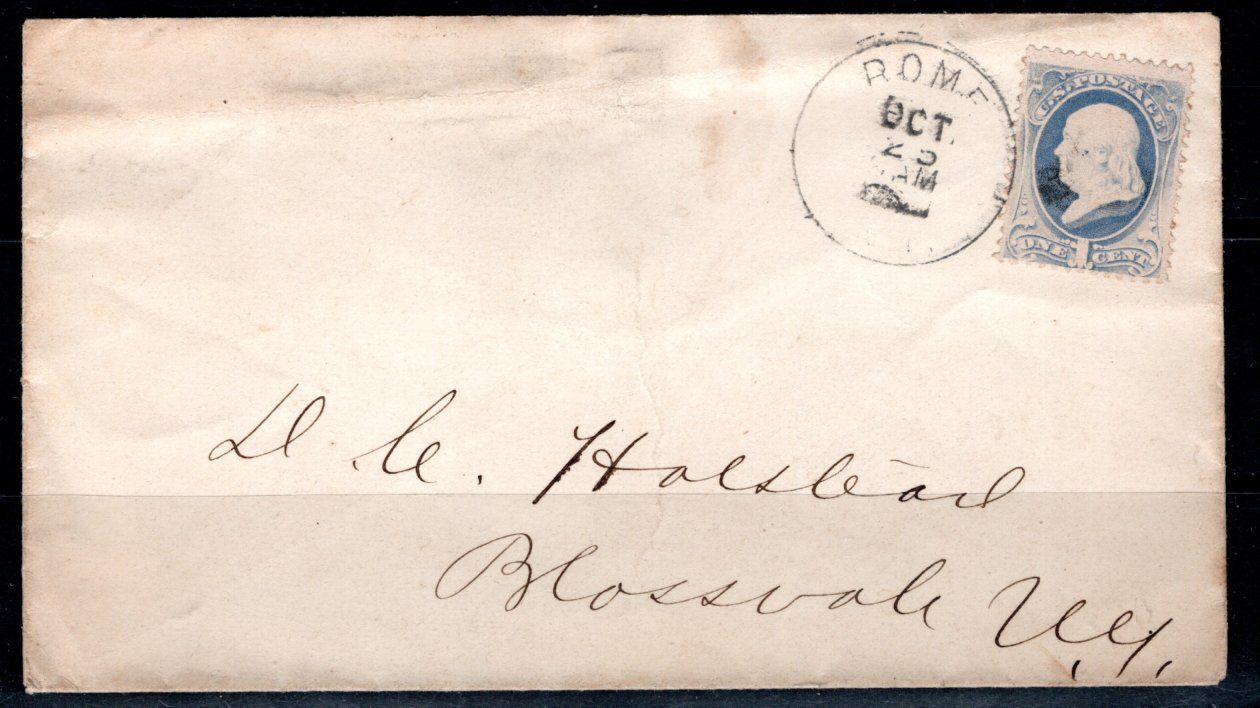 ROME
OCT.
25
AM
U.S. POSTAGE
ONE 1 CENT
D. C. Halstead
Blossvale N.Y.